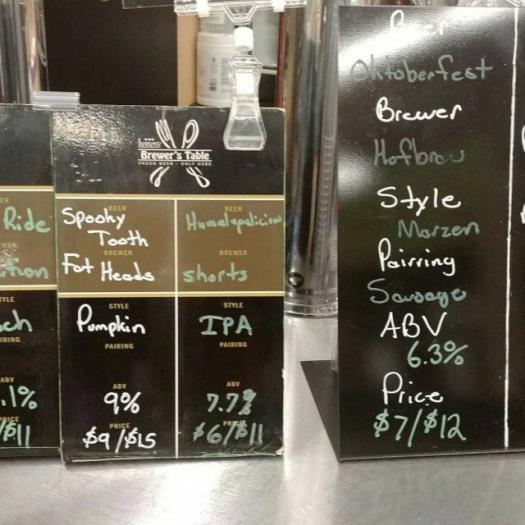 Brewer's Table
FRESH BEER - ONLY HERE
Ride
ch
.1%
BEER
Spooky
Tooth
BREWER
Fat Heads
STYLE
Pumpkin
PAIRING
ABV
9%
PRICE
$9/$15
BEER
BREWER
shorts
STYLE
IPA
PAIRING
ABV
7.7%
PRICE
$6/$11
Beer
Oktoberfest
Brewer
Hofbrau
Style
Marzen
Pairring
Sausage
ABV
6.3%
Price
$7/$12